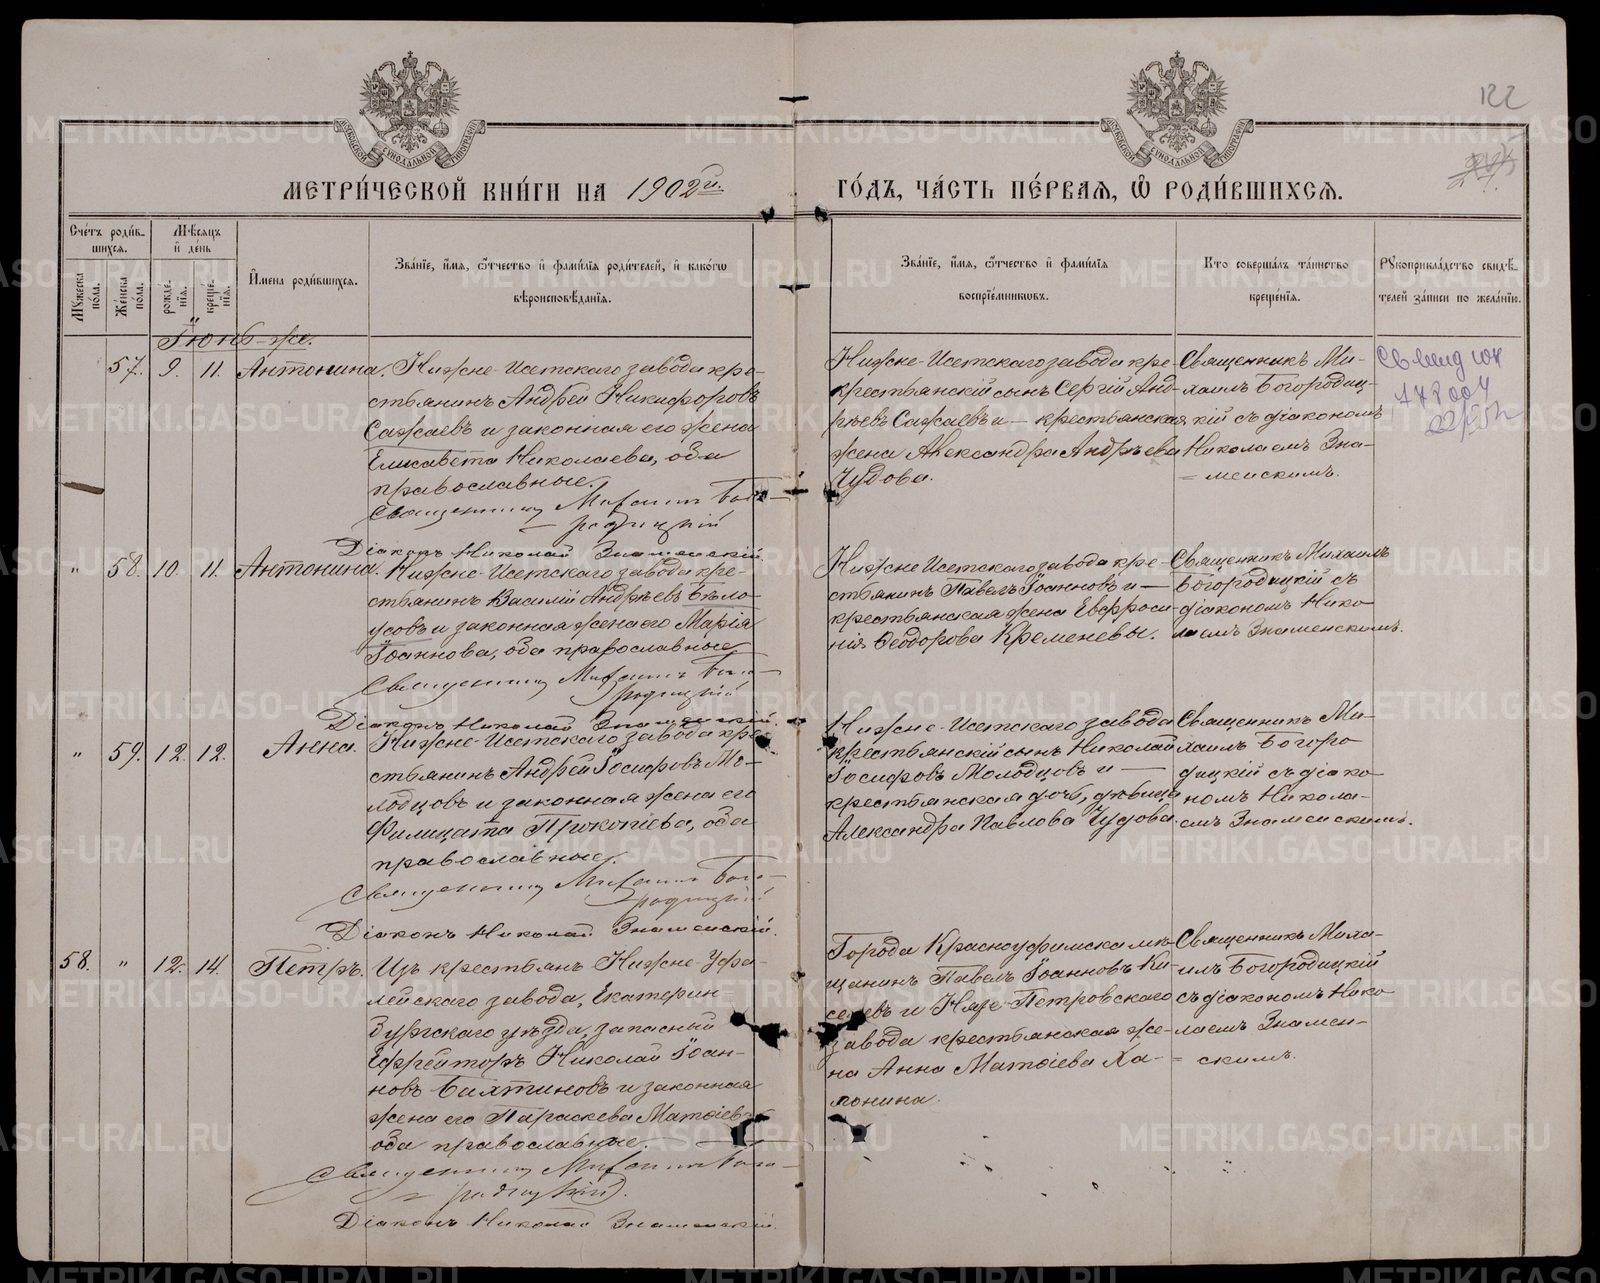 122
МЕТРИ́ЧЕСКОЙ КНИ́ГИ НА 1902й. ГО́ДЪ, ЧА́СТЬ ПЕ́РВАѦ, Ѡ РОДИ́ВШИХСѦ.
Сче́тъ роди́в-
шихсѧ.
Мꙋ́жеска
по́ла.
Же́нска
по́ла.
Мѣ́сѧцъ
и҆ де́нь
рожде́-
нїѧ.
креще́-
нїѧ.
И҆мена роди́вшихсѧ.
Зва́нїе, и҆́мѧ, ѻ҆́тчество и҆ фами́лїѧ роди́телей, и҆ како́гѡ
вѣроисповѣ́данїѧ.
Зва́нїе, и҆́мѧ, ѻ҆́тчество и҆ фами́лїѧ
воспрїе́мникѡвъ.
Кто̀ соверша́лъ та́инство
креще́нїѧ.
Рꙋкоприкла́дство свидѣ́-
телей за́писи по жела́нїю.
Іюнь-же.
57. 9. 11. Антонина.
Нижне-Исетскаго завода кре-
стьянинъ Андрей Никифоровъ
Сажаевъ и законная его жена
Елисавета Николаева, оба
православные.
Священникъ Михаилъ Бого-
родицкій
Діаконъ Николай Знаменскій.
Нижне-Исетскаго завода кре-
крестьянскій сынъ Сергій Анд-
рѣевъ Сажаевъ и — крестьянская
жена Александра Андрѣева
Чудова.
Священникъ Ми-
хаилъ Богородиц-
кій съ діакономъ
Николаемъ Зна-
= менскимъ.
" 58. 10. 11. Антонина.
Нижне-Исетскаго завода кре-
стьянинъ Василій Андрѣевъ Бѣло-
усовъ и законная жена его Марія
Іоаннова, оба православные
Священникъ Михаилъ Бого-
родицкій
Діаконъ Николай Знаменскій.
Нижне Исетскаго завода кре-
стьянинъ Павелъ Іоанновъ и —
крестьянская жена Евфроси-
нія Ѳеодорова Кременевы.
Священникъ Михаилъ
Богородицкій съ
діакономъ Нико-
лаемъ Знаменскимъ.
" 59. 12. 12. Анна.
Нижне-Исетскаго завода кре-
стьянинъ Андрей Іосифовъ Мо-
лодцовъ и законная жена его
Филицата Прокопіева, оба
православные.
Священникъ Михаилъ Бого-
родицкій
Діаконъ Николай Знаменскій.
Нижне-Исетскаго завода
крестьянскій сынъ Николай
Іосифовъ Молодцовъ и —
крестьянская дочь, дѣвица
Александра Павлова Чудова.
Священникъ Ми-
хаилъ Богоро-
дицкій съ діако-
номъ Никола-
емъ Знаменскимъ.
58. " 12. 14. Петръ.
Изъ крестьянъ Нижне-Уфа-
лейскаго завода, Екатерин-
бургскаго уѣзда, запасный
Ефрейторъ Николай Іоан-
новъ Бахтиновъ и законная
жена его Параскева Матѳіева
оба православные.
Священникъ Михаилъ Бого-
= родицкій.
Діаконъ Николай Знаменскій.
Города Красноуфимска мѣ-
щанинъ Павелъ Іоанновъ Ки-
селевъ и Нязе-Петровскаго
завода крестьянская же-
на Анна Матѳіева Ха-
лонина.
Священникъ Миха-
илъ Богородицкій
съ діакономъ Нико-
лаемъ Знамен-
= скимъ.